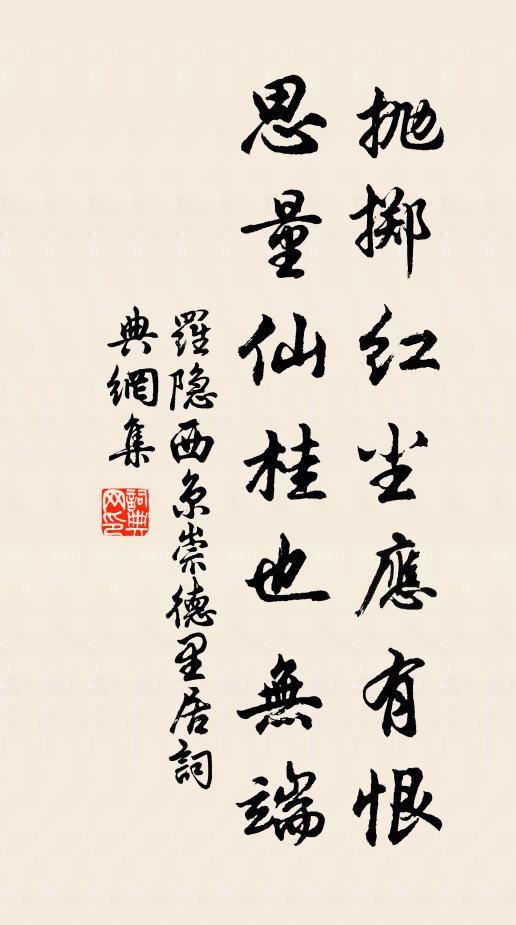 抛掷红尘應有恨
思量仙桂也無端
羅隐西京崇德里居詞
典網集
詞典
网印